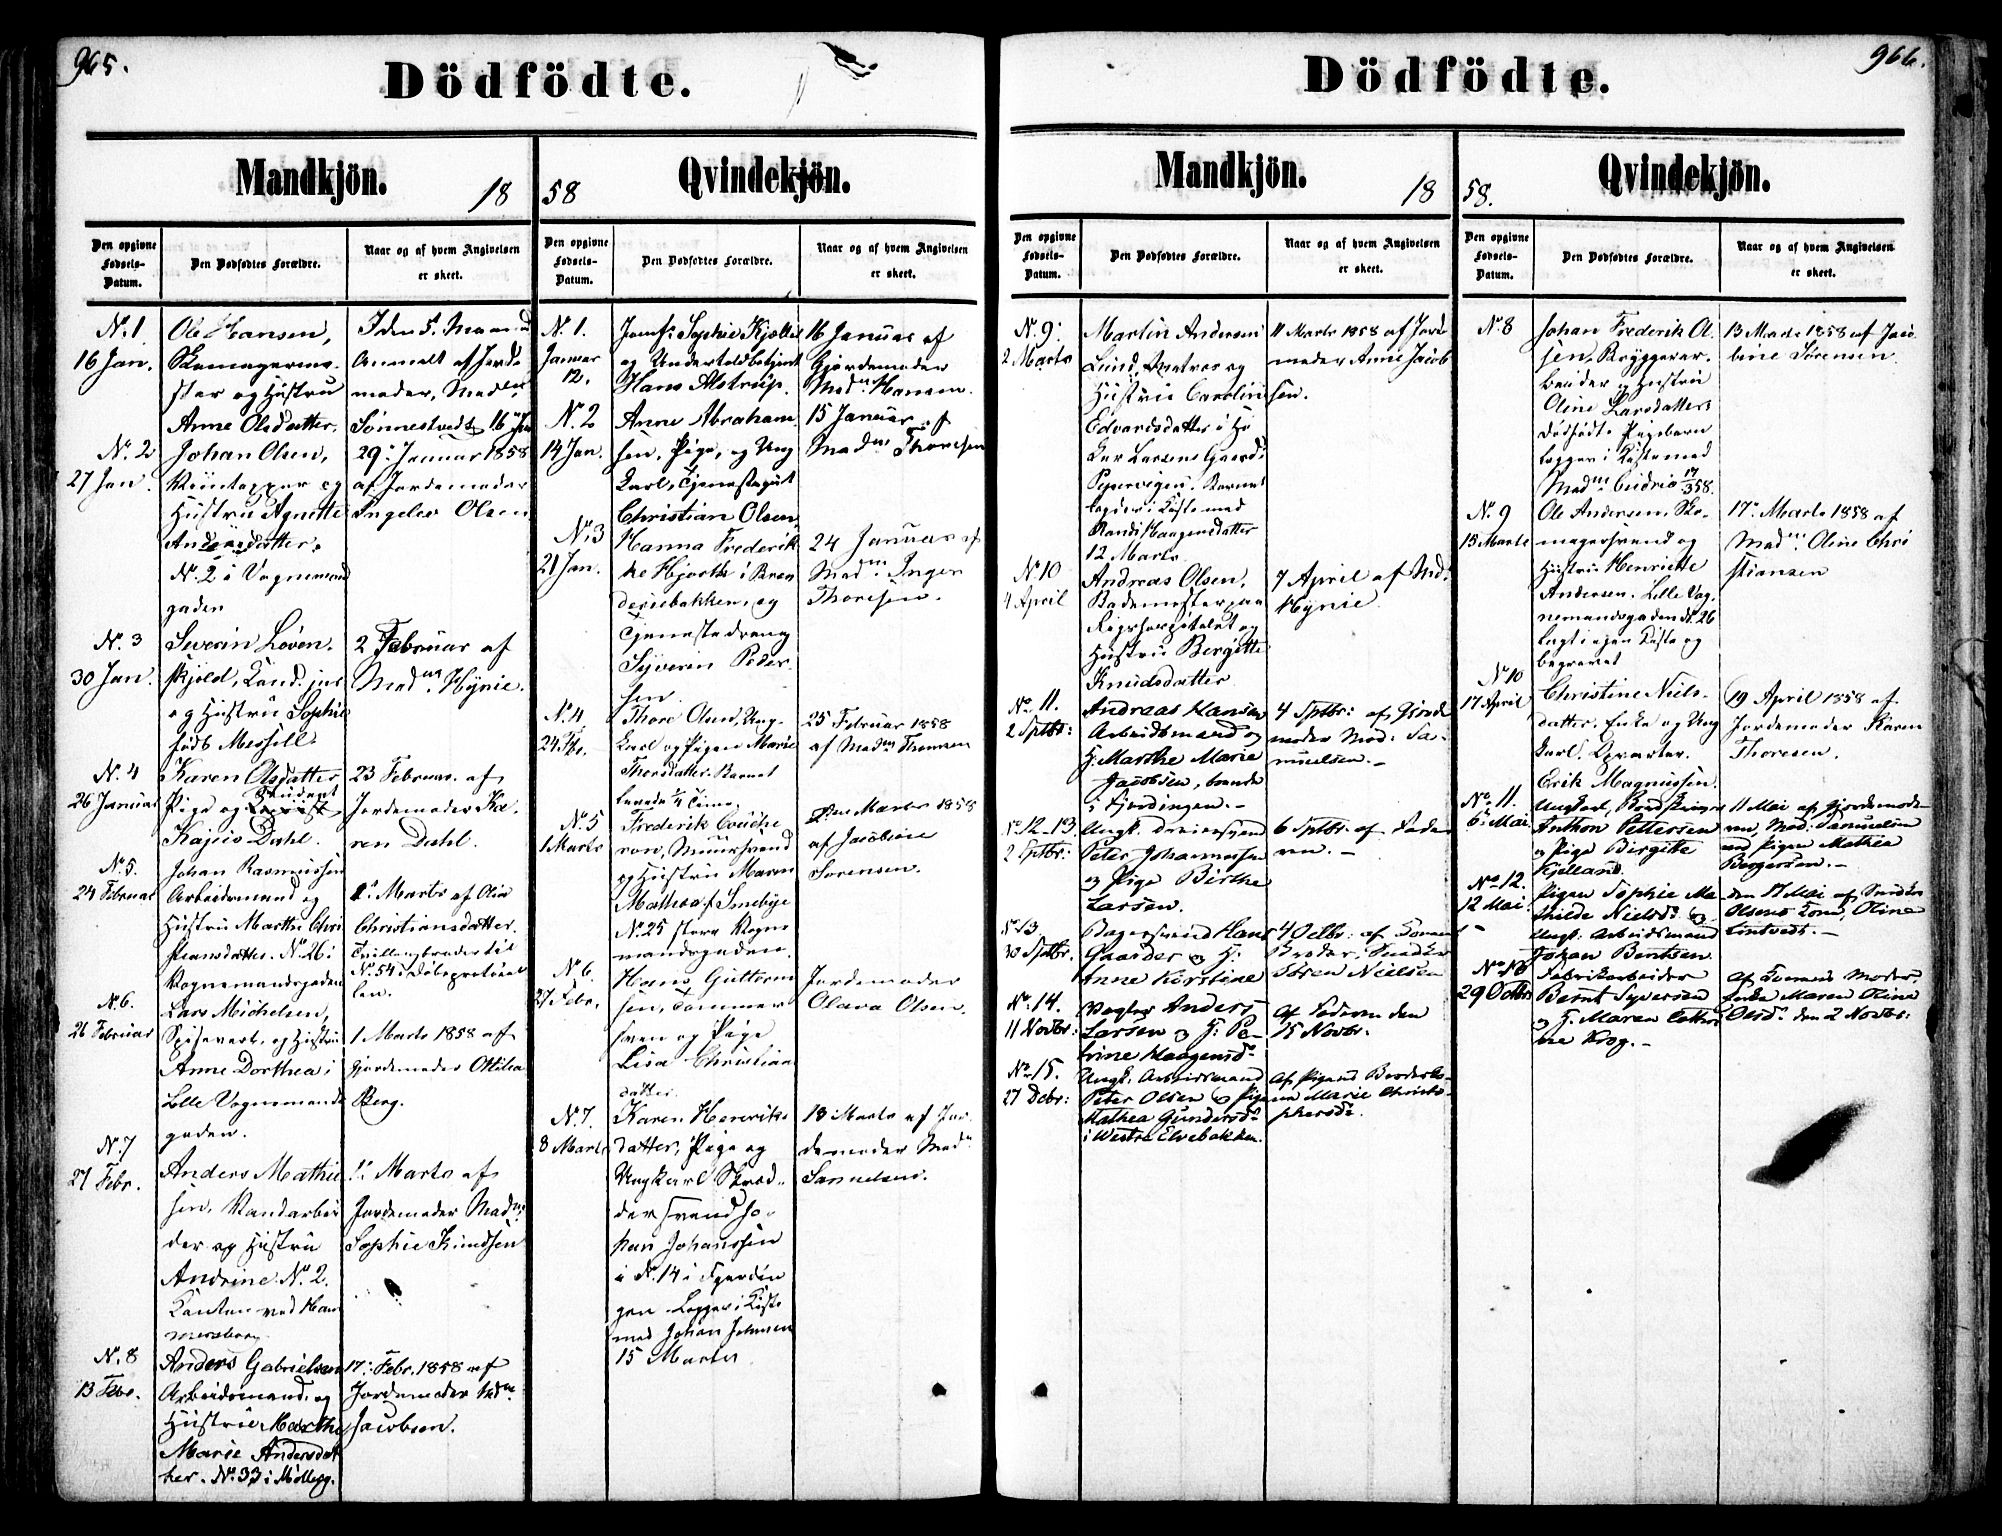 965.
Dödfödte.
Mandkjön.
18
Den opgivne
Fødsels-
Datum.
Den Dødfødtes Forældre.
Naar og af hvem Angivelsen
er skeet.
No. 1
16 Jan.
Ole Hansen,
Skomagerme-
ster og Hustru
Anne Olsdatter.
Anmelt af Jorde-
moder, Mad.
16 Jan
No. 2
27 Jan.
Johan Olsen,
og
Hustru Agnette
Andersdatter.
No. 2 i Vognmand
gaden
29 Januar 1858
af Jordemoder
Ingelev Olsen
No. 3
30 Jan.
Severin Løven-
skjold, Cand. jur
og Hustru Sophie
født Messell.
2 Februar af
Madm. Hynie.
No. 4
26 Januar
Karen Olsdatter
Pige og Student
Dahl.
23 Februar. af
Jordemoder Ka-
ren Dahl.
No. 5.
24 Februar
Johan Rasmussen
Arbeidsmand og
Hustru Marthe Chri
stiansdatter. No. 26 i
Vognemandsgaden
1. Marts af Olia
Christiansdatter.
Tvillingbroder til
No. 54 i Døbeprotocol
len.
No. 6.
26 Februar
Lars Michelsen,
Spisevert, og Hustru
Anne Dorthea i
Lille Vognemands
gaden.
1 Marts 1858 af
Gjordemoder Ottilia
Berg.
No. 7
27 Febr.
Anders Mathie
sen, Vandarbei
der og Hustru
Andrine No. 2.
Kanten ved Ham
mersborg.
1. Marts af
Jordemoder Madm.
Sophie Knudsen
No. 8
13 Febr.
Anders Gabrielsen
Arbeidsmand. og
Hustrue Marthe
Marie Andersdat
ter. No. 33 i Møllerg.
17. Febr. 1858 af
Jordemoder Mdm.
Jacobsen.
Qvindekjön.
58
Den opgivne
Fødsels-
Datum.
Den Dødfødtes Forældre.
Naar og af hvem Angivelsen
er skeet.
No. 1.
Januar
12.
Jomf: Sophie
og Undertoldbetjent
Hans Alstrup.
16 Januar af
Gjordemoder
Madm. Hansen.
No. 2
14 Jan.
Anne Abraham
sen, Pige, og Ung
karl, Tjenestegut
Christian Olsen.
15 Januar af
Madm. Thoresen
No. 3
21 Jan.
Hanna Frederik
ke Hjorth i
og
Tjenestedreng
Syverin Peder-
sen
24 Januar af
Madm. Inger
Thoresen.
No. 4
24 Fbr.
Thore Olsen, Ung-
karl og Pigen Marie
Thorsdatter. Barnet
levede 1/4 Time.
25 Februar 1858
af Madm Thomsen
No. 5
1 Marts
Frederik
ron, Muursvend
og Hustru Maren
Mathea f. Smebye
No. 25 store Vogne
mandsgaden.
Marts 1858
af Jacobine
Sørensen.
No. 6.
27 Febr.
Hans Guttorm
sen, Tømmer
sven og Pige
Lisa Christian
datter.
Jordemoder
Olava Olsen.
No. 7.
8 Marts
Karen Henriks
datter, Pige og
Ungkarl Skræd-
der svend Jo-
han Johanssen
i No. 14 i Fjerdin
gen. Legger i Kiste
med Johan Johnsen
15 Marts
13 Marts af Jor
demoder Madm
Samuelsen.
966.
Dödfödte.
Mandkjön.
18
Den opgivne
Fødsels-
Datum.
Den Dødfødtes Forældre.
Naar og af hvem Angivelsen
er skeet.
No. 9:
2 Marts
Martin Andersen
Lund, Matros og
Hustrue Caroline
Edvardsdatter i Ho
kar Larsens Gaard i
Pipervigen. Barnet
legges i Kiste med
Randi Haagensdatter
12 Marts.
11 Marts 1858 af Jord
moder Anne Jacob
sen.
No. 10
4 April
Andreas Olsen.
Bademester paa
Rigshospitalet og
Hustrue Bergitte
Knudsdatter
7 April af Md:
Hynie.
No. 11.
2 Sptbr:
Andreas Hansen
Arbeidsmand og
H. Marthe Marie
Jacobsen, boende
i Fjerdingen.-
4 Sptbr: af Gjorde
moder Mad: Sa-
muelsen.-
No. 12-13
2 Sptbr:
Ungk. Dreiersvend
Peter Johannessen
og Pige Birthe
Larsen.
6 Sptbr. af Fade
ren.-
No. 13.
30 Sptbr.
Bagersvend Hans
Gaarder og H:
Anne Kirstine
4 Octbr: af
Broder, Snedker
Søren Nielsen
No. 14.
11 Novbr:
Vægter Anders
Larsen og H: Pe-
trine Haagensd.
af Faderen den
15 Novbr.
No. 15.
27 Debr:
Ungk. Arbeidsmand
Peter Olsen og Pige
Mathea Gundersd.
i Westre Elvebakken.
Af Pigens
Marie Christo-
phersd.
Qvindekjön.
58.
Den opgivne
Fødsels-
Datum.
Den Dødfødtes Forældre.
Naar og af hvem Angivelsen
er skeet.
No. 8
Johan Frederik Ol-
sen, Bryggerar-
beider og Hustru
Oline Larsdatters
Dödfödte Pigebarn
legges i Kiste med
Madm. 17/3 58.
13 Marts 1858 af Jaco
bine Sörensen.
No. 9
15 Marts
Ole Andersen. Sko-
magersvend og
Hustrue Henriette
Andersen. Lille Vog-
nemandsgaden No. 26
lagt i egen Kiste og
begravet
17. Marts 1858 af
Madm. Oline Chri
stiansen
No. 10
17 April
Christine Niels-
datter. Enke og Ung
karl.
Erik Magnussen.
19 April 1858 af
Jordemoder Karen
Thoresen.
No. 11.
6. Mai
Anthon Pettersen
og Pige Birgitte
Kjelland.
11 Mai af Gjordemode-
ren, Mad. Samuelsen
ved Pigen Mathea
Borgersen.-
No. 12.
12 Mai.
Pigen Sophie Ma
thilde Nielsd. og
Ungk: Arbeidsmand
Johan Berntsen
den 17 Mai af Snedker
Olsens Kone, Oline
Lintvedt.-
No. 13
29 Octbr
Fabrikarbeider
Bernt Syversen
og H. Maren Cathri
ne Krog.-
af Konens Moder,
Enke Maren Oline
Olsd. den 2 Novbr: